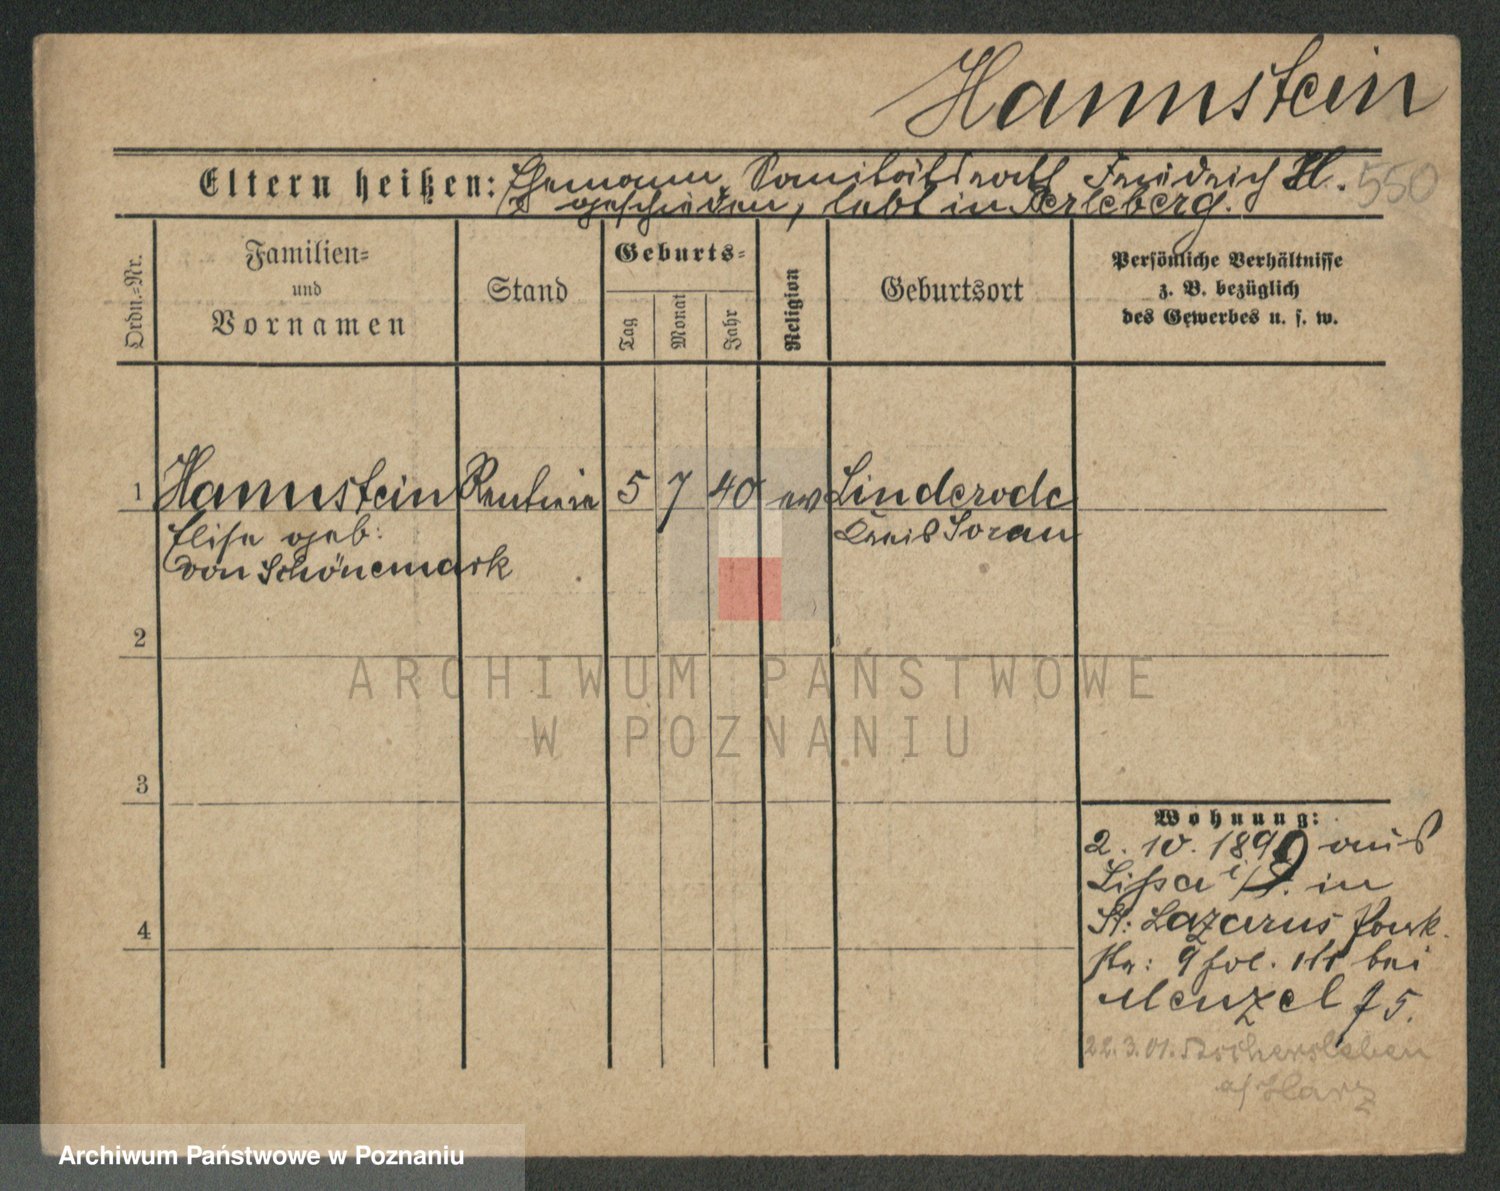 Hannstein
Eltern heißen: Ehemann, Sanitätsrath Friedrich H. 550
geschieden, lebt in Perleberg.
Ordn.-Nr.
Familien-
und
Vornamen
Stand
Geburts-
Tag
Monat
Jahr
Religion
Geburtsort
Persönliche Verhältnisse
z. B. bezüglich
des Gewerbes u. s. w.
1 Hannstein Rentiere 5 7 40 ev Linderode
Elise geb: Kreis Sorau
von Schönemark
2
3
4
ARCHIWUM PAŃSTWOWE
W POZNANIU
Wohnung:
2. 10. 1899 aus
Lissa i/P. in
St: Lazarus Park
str: 9 bei
Menzel f 5.
22.3.01. Aschersleben
a/Harz
Archiwum Państwowe w Poznaniu